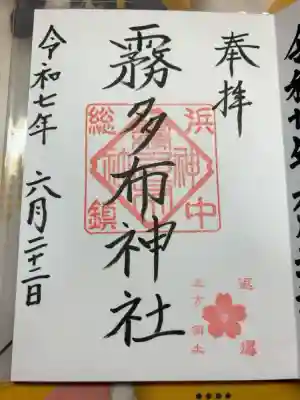 奉拝
霧多布神社
令和七年 六月二十二日
浜中
総鎮
返還